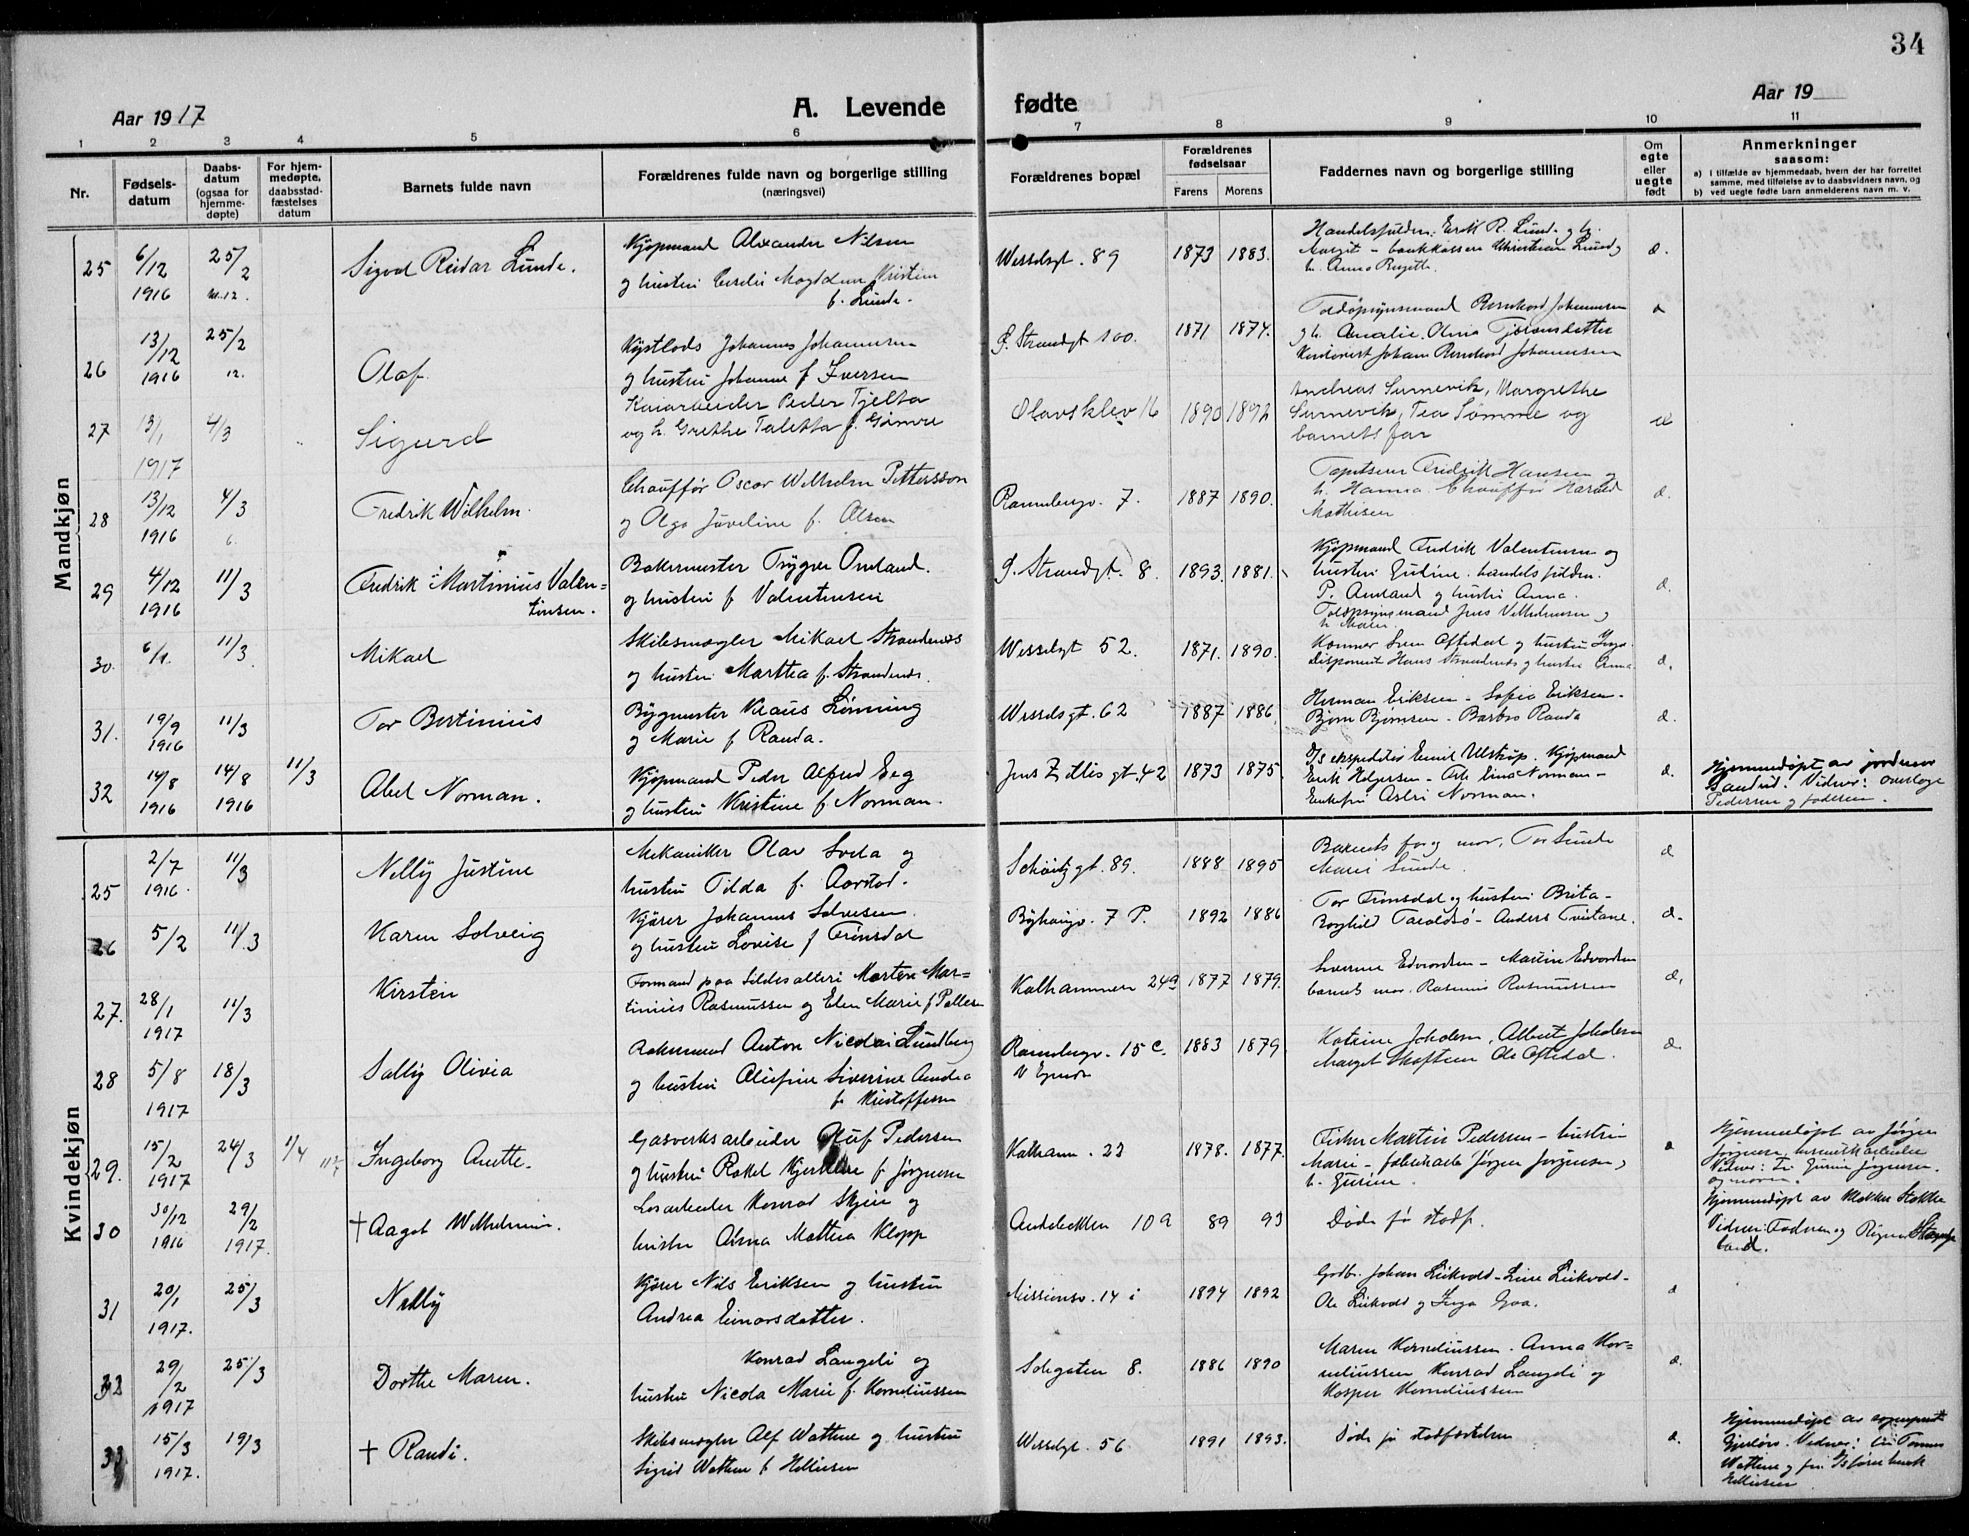 34
Aar 1917 A. Levende fødte Aar 19
1 2 3 4 5 6 7 8 9 10 11
Nr. Fødsels-datum Daabs-datum (ogsaa for hjemme-døpte) For hjem-medøpte, daabsstad-fæstelses datum Barnets fulde navn Forældrenes fulde navn og borgerlige stilling (næringsvei) Forældrenes bopæl Forældrenes fødselsaar Farens Morens Faddernes navn og borgerlige stilling Om egte eller uegte født Anmerkninger saasom:
a) i tilfælde av hjemmedaab, hvem der har forrettet samme, med tilføielse av to daabsvidners navn, og
b) ved uegte fødte barn anmelderens navn m. v.
Mandkjøn
25 6/12 1916 25/2 Sigval Reidar Lunde. Kjøpmand Alexander Nilsen
og hustru Magdalene Kristine
f. Lunde. Wesselsgt. 89 1873 1883.
26 13/12 1916 25/2 Olaf. Kystlods Johannes Johannesen
og hustru Johanne f Iversen S. Strandgt 100. 1871 1874.
27 13/1 1917 4/3 Sigurd Kaiarbeider Peder Tjelta
og h. Grethe Taletta f. Gimre Olavsklev 16 1890 1892 Andreas Sunnevik, Margrethe
Sunnevik, Tea Sømme og
barnets far
28 13/12 1916 4/3 Fredrik Wilhelm. Chauffør Oscar Wilhelm Pettersson
og Olga Juveline f. Olsen Rannebergv. 7. 1887 1890. Fredrik Hansen og
h. Hanna. Chauffør Harald
Mathisen
29 4/12 1916 11/3 Fredrik Martinius Valen-
tinsen. Bakermester Trygve Omland.
og hustru f Valentinsen S. Strandgt. 8. 1893. 1881. Kjøpmand Fredrik Valentinsen og
hustru Guline. handelsfuldm.
P. Omland og hustru Anna.
Toldopsynsmand Jens Vilhelmsen og
h. Maren.
30. 11/3 Mikael Skibsmægler Mikael Strandenæs
og hustru Marthea f. Strandenæs. Wesselsgt 52. 1871. 1890. Sven Oftedal og hustru Inga
Disponent Hans Strandenæs og hustru Anna
31. 19/9 1916 11/3 Tor Bertinius Bygmester Klaus Lønning
og Marie f Randa. Wesselsgt. 62 1887 1886 Herman Eriksen - Sofie Eriksen -
Bjørn Bjørnsen - Barbro Randa
32 14/8 1916 14/8 1916 11/3 Abel Norman. Kjøpmand Peder Alfred Eeg
og hustru Kristine f Norman. Jens Zetlis gt. 42 1873 1875. D/s ekspeditør Emil Ulstrup. Kjøpmand
Erik Helgersen - Norman -
Enkefru Astri Norman. Hjemmedøpt av jordmor
Vidner: overlæge
Pedersen og faderen.
Kvindekjøn
25 2/7 1916. 11/3 Nelly Justine Mekaniker Olav Sola og
hustru Tilda f. Aarstad. Schøitzgt. 89. 1888 1895 Barnets far og mor, Tor Sunde
Marie Sunde.
26 5/2 11/3 Karen Solveig Kjører Johannes Solvesen.
og hustru Lovise f Trønsdal Byhaugv. 7 P. 1892 1886 Tor Trønsdal og hustru Brita -
Borghild - Anders Tveitane.
27. 28/1 1917 11/3 Kirsten Formand paa Sildesalteri Morten Mar-
tinius Rasmussen og Elen Marie f Pallesen Kalhammern 249 1877 1879. Severine Edvardsen - Martin Edvardsen
barnets mor. Rasmus Rasmussen
28 5/8 1917 18/3 Sally Olivia Anton Nicolai Lundberg
og hustru Severine Andrea
f. Kristoffersen Rannebergv. 15 c. 1883 1879. Katrine Jakobsen, Albert Jakobsen
Ole Oftedal.
29. 15/2 1917 24/3 1/4 Ingeborg Anette. Gasverksarbeider Oluf Pedersen
og hustru Rakel f Jørgensen Kalhamm. 23 1878. 1877. Fisker Martin Pedersen - hustru
Marie - Jørgen Jørgensen,
h. Gurine. Hjemmedøpt av Jørgen
Jørgensen,
Vidner: Fr. Gurine Jørgensen.
og moren.
30 30/12 1916 29/2 1917. † Aagot Wilhelmine. Løsarbeider Konrad Skjeie og
hustru Alma Mathea Klopp Andebakken 10a 89 93 Døde før stadf. Hjemmedøpt av klokker Stokka
Vidner: Faderen og
31 20/1 1917. 25/3 Nelly Kjører Nils Eriksen og hustru
Andrea Einarsdatter. Missionsv. 14 i 1894 1892 Johan Liikvold - Line Liikvold -
Ole Liikvold og Inga Goa.
32 29/2 1917 25/3 Dorthe Maren. Konrad Langeli og
hustru Nicola Marie f. Korneliussen Solegaten 8. 1886 1890 Maren Korneliussen. Anna Kor-
neliussen Konrad Langeli og
Kasper Korneliussen
33 15/3 1917. 19/3 † Randi. Skibsmægler Alf Wattne og hustru
Sigrid Wattne f Helliesen Wesselsgt. 56 1891 1893. Døde før stadfæstelsen Hjemmedøpt av sogneprest
Gjerløw. Vidner:
Wattne og fru
Helliesen